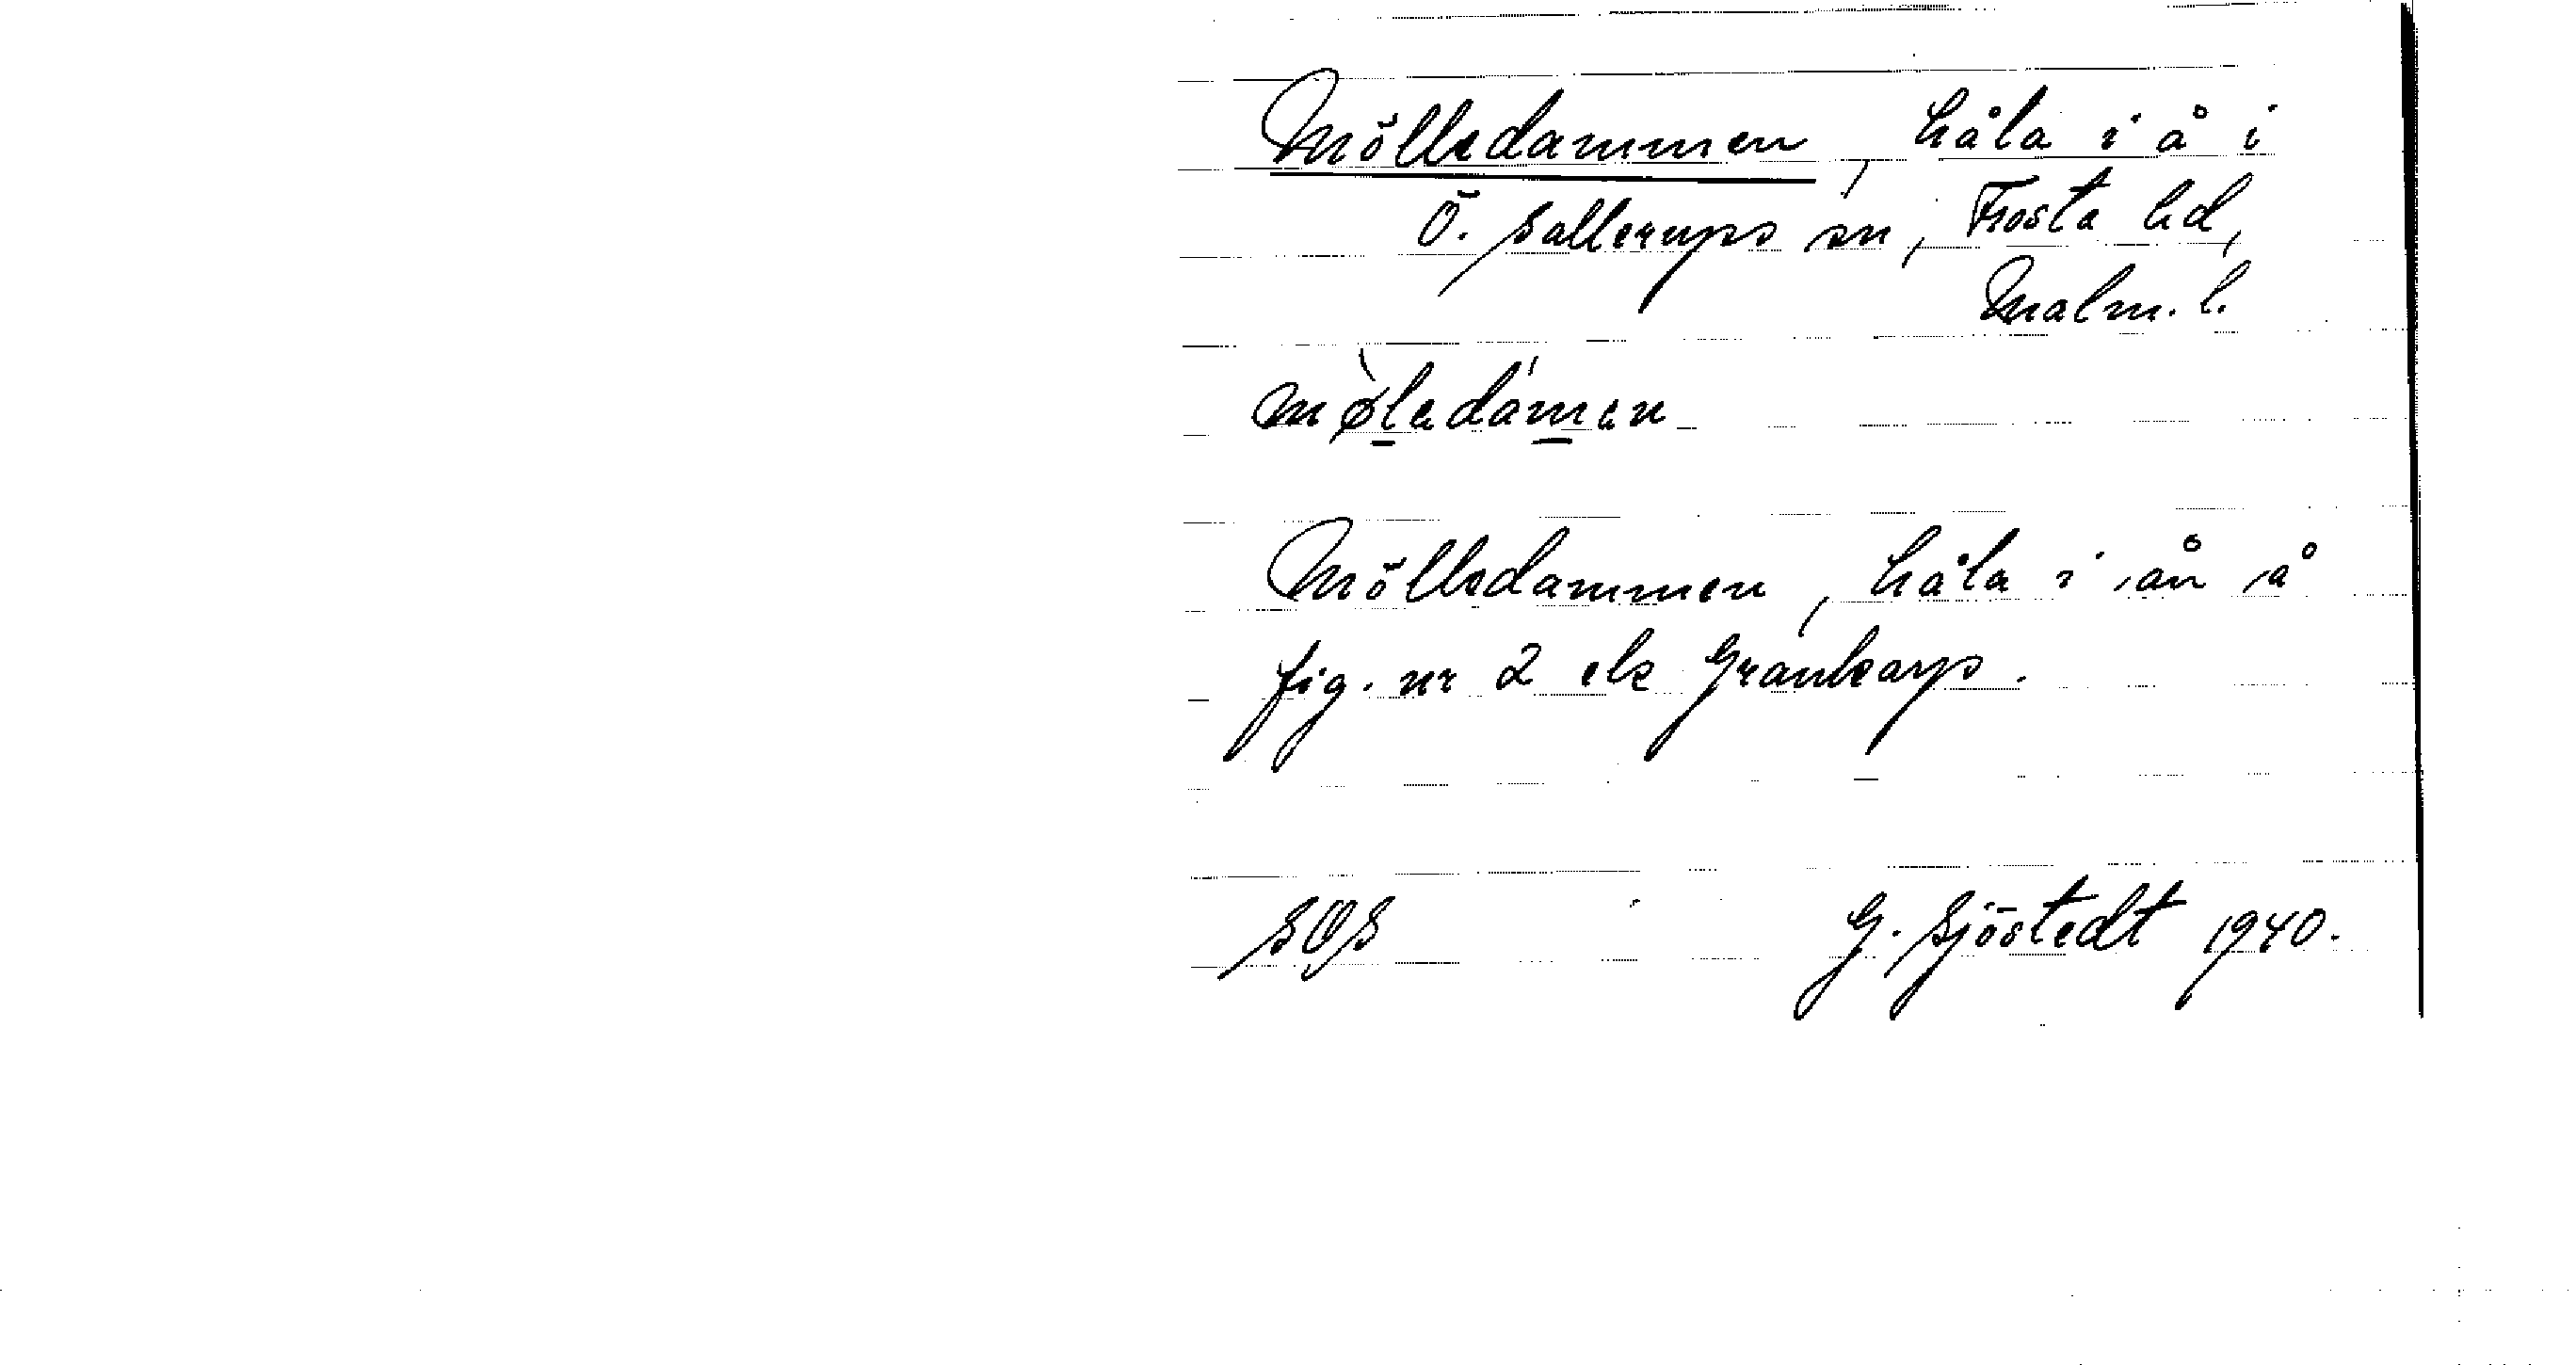 Mölledammen, håla i å i
Ö. Sallerups sn, Frosta hd,
Malm. l.
mø̀lədámən
Mölledammen, håla i ån å
fig. nr 2 ek Grankarp.
SOS G. Sjöstedt 1940.